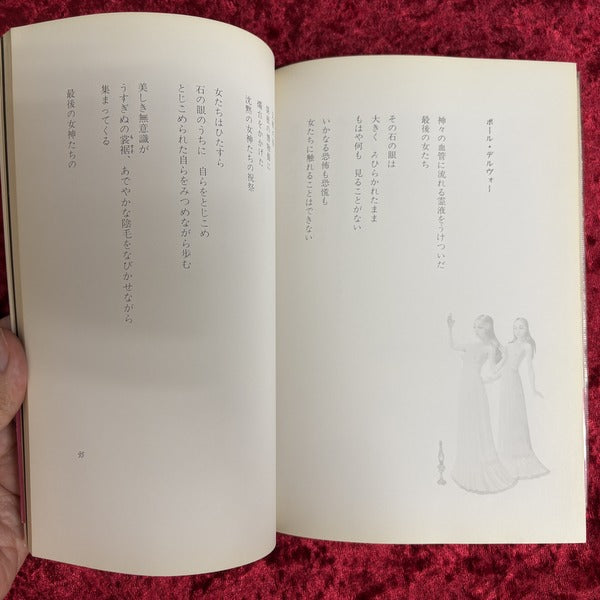 ポール・デルヴォー
神々の血管に流れる霊液をうけついだ
最後の女たち
その石の眼は
大きく みひらかれたまま
もはや何も 見ることがない
いかなる恐怖も恐慌も
女たちに触れることはできない
燭台をかかげた
沈黙の女神たちの祝祭
女たちはひたすら
石の眼のうちに 自らをとじこめ
とじこめられた自らをみつめながら歩む
美しき無意識が
うすぎぬの裳裾、あでやかな陰毛をなびかせながら
集まってくる
最後の女神たちの